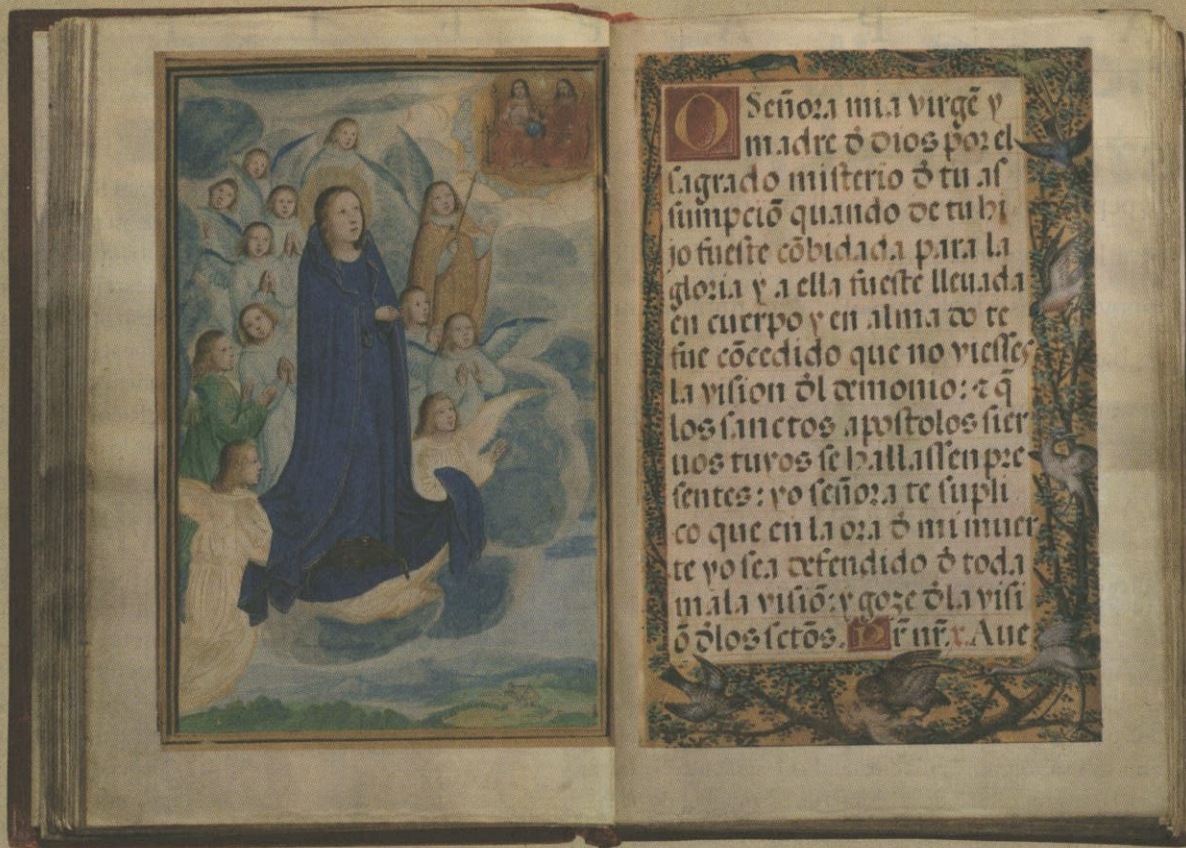 O Señora mia virgẽ y
madre đ dios por el
sagrado misterio đ tu as
sumpciõ quando de tu hi
jo fueste cõbidada para la
gloria y a ella fueste lleuada
en cuerpo y en alma do te
fue cõcedido que no viesses
la vision đl demonio: ⁊ q̃
los sanctos apostolos sier
uos tuyos se hallassen pre
sentes: yo señora te supli
co que en la ora đ mi muer
te yo sea defendido đ toda
mala visiõ: y goze đla visi
õ đlos sctõs. Pr̃ nr̃. x. Aue